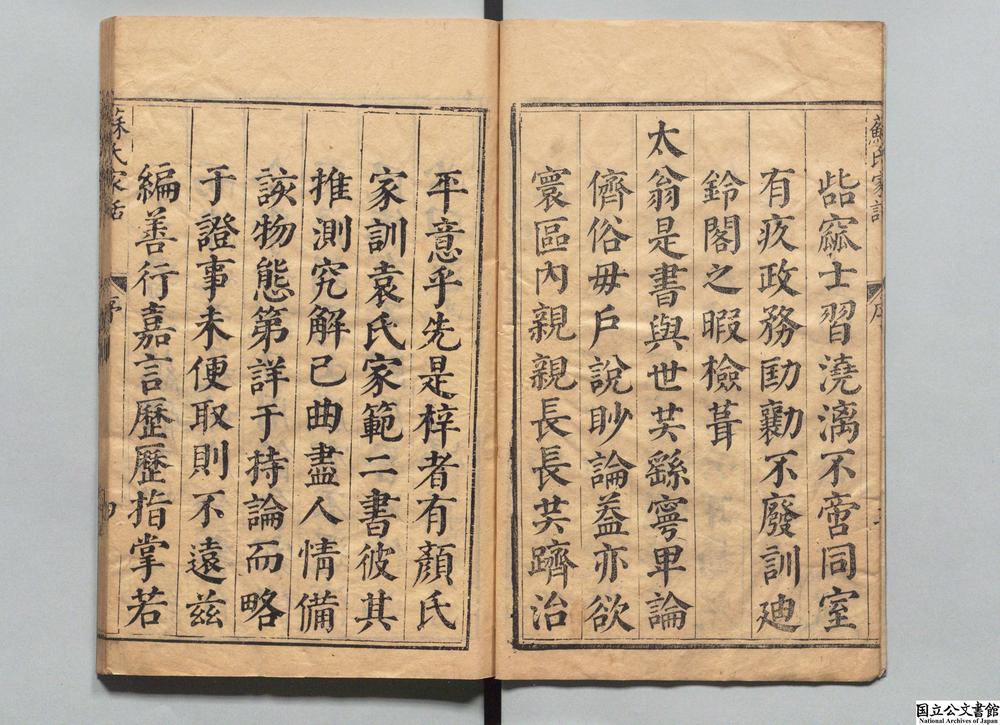 呰窳士習澆漓不啻同室
有疚政務劻勷不廢訓廸
鈴閣之暇檢葺
太翁是書與世共繇寧卑論
儕俗毋戶說眇論益亦欲
寰區內親親長長共躋治
平意乎先是梓者有顏氏
家訓袁氏家範二書彼其
推測究解已曲盡人情備
該物態第詳于持論而略
于證事未便取則不遠兹
編善行嘉言歷歷指掌若
蘇氏家語
序
国立公文書館
National Archives of Japan